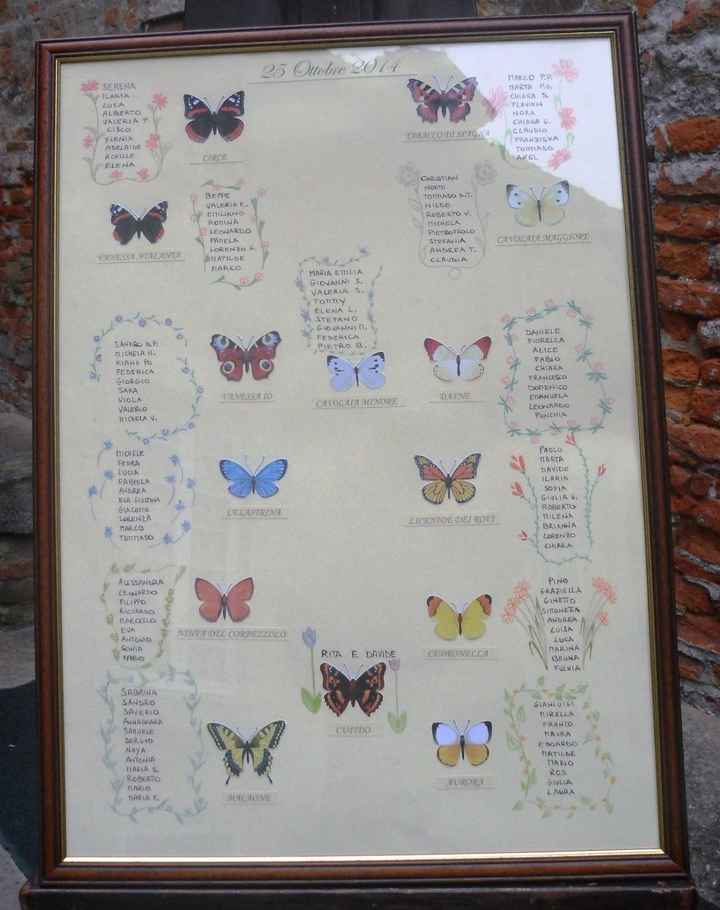 25 Ottobre 2014
SERENA
ILARIA
LUCA
ALBERTO
VALERIA T.
CISCO
ILENIA
ADELAIDE
ACHILLE
ELENA
CIRCE
MARCO P.P.
MARTA
CHIARA S.
FLAVIAN
NORA
CHIARA E.
CLAUDIO
FRANZISKA
TOMMASO
AXEL
VANESSA ATALANTA
BEPPE
VALERIA E.
EMILIANO
ROMINA
LEONARDO
PAMELA
LORENZO
MATILDE
MARCO
CHRISTIAN
TOMMASO
ROBERTO V.
MICHELA
STEFANIA
ANDREA T.
CLAUDIA
CAVOLAIA MAGGIORE
MARIA EMILIA
GIOVANNI S.
VALERIA S.
TOMMY
ELENA L.
STEFANO
GIOVANNI
FEDERICA
PIETRO B.
CAVOLAIA MINORE
SANDRO
MICHELA
FEDERICA
GIORGIO
SARA
VIOLA
VALERIO
MICHELA V.
VANESSA IO
DAFNE
DANIELE
FIORELLA
ALICE
FABIO
CHIARA
FRANCESCO
DOMENICO
EMANUELA
LEONARDO
MICHELE
LUCIA
FABIOLA
ANDREA
GIACOMO
LORENZA
MARCO
TOMMASO
CELASTRINA
LICENIDE DEI ROVI
PAOLO
MARTA
DAVIDE
ILARIA
SOFIA
GIULIA
ROBERTO
MILENA
BRIANNA
LORENZO
CHIARA
ALESSANDRA
LEONARDO
FILIPPO
RICCARDO
MARCELLO
EVA
ANTONIO
SONIA
NINFA DEL CORBEZZOLO
CEDRONELLA
PINO
GRAZIELLA
GINETTO
SIMONETTA
ANDREA
LUISA
LUCA
MARINA
BRUNA
FULVIA
RITA E DAVIDE
CUPIDO
SABRINA
SANDRO
SAVERIO
ANNAMARIA
SAMUELE
SERGIO
NAYA
ANTONIA
MARIA S.
ROBERTO
MARIO
MARIA E.
MACAONE
AURORA
GIANLUIGI
MIRELLA
FRANCO
MAURA
EDOARDO
MATILDE
MARIO
ROS
GIULIA
LAURA